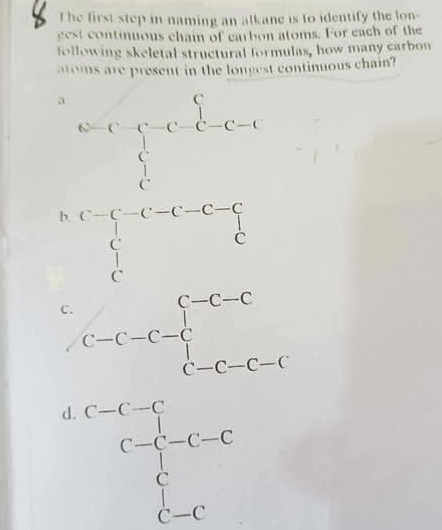 8 The first step in naming an alkane is to identify the lon-
gest continuous chain of carbon atoms. For each of the
following skeletal structural formulas, how many carbon
atoms are present in the longest continuous chain?
a.
C
C-C-C-C-C-C-C
C
C
b. C-C-C-C-C-C
C C
C
c.
C-C-C
C-C-C-C
C-C-C-C
d. C-C-C
C-C-C-C
C
C-C